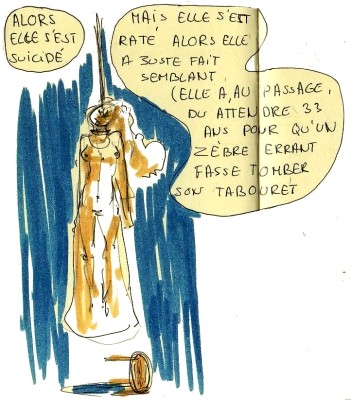 ALORS
ELLE S'EST
SUICIDÉ
MAIS ELLE S'EST
RATÉ ALORS ELLE
A JUSTE FAIT
SEMBLANT
(ELLE A, AU PASSAGE,
DU ATTENDRE 33
ANS POUR QU'UN
ZÈBRE ERRANT
FASSE TOMBER
SON TABOURET